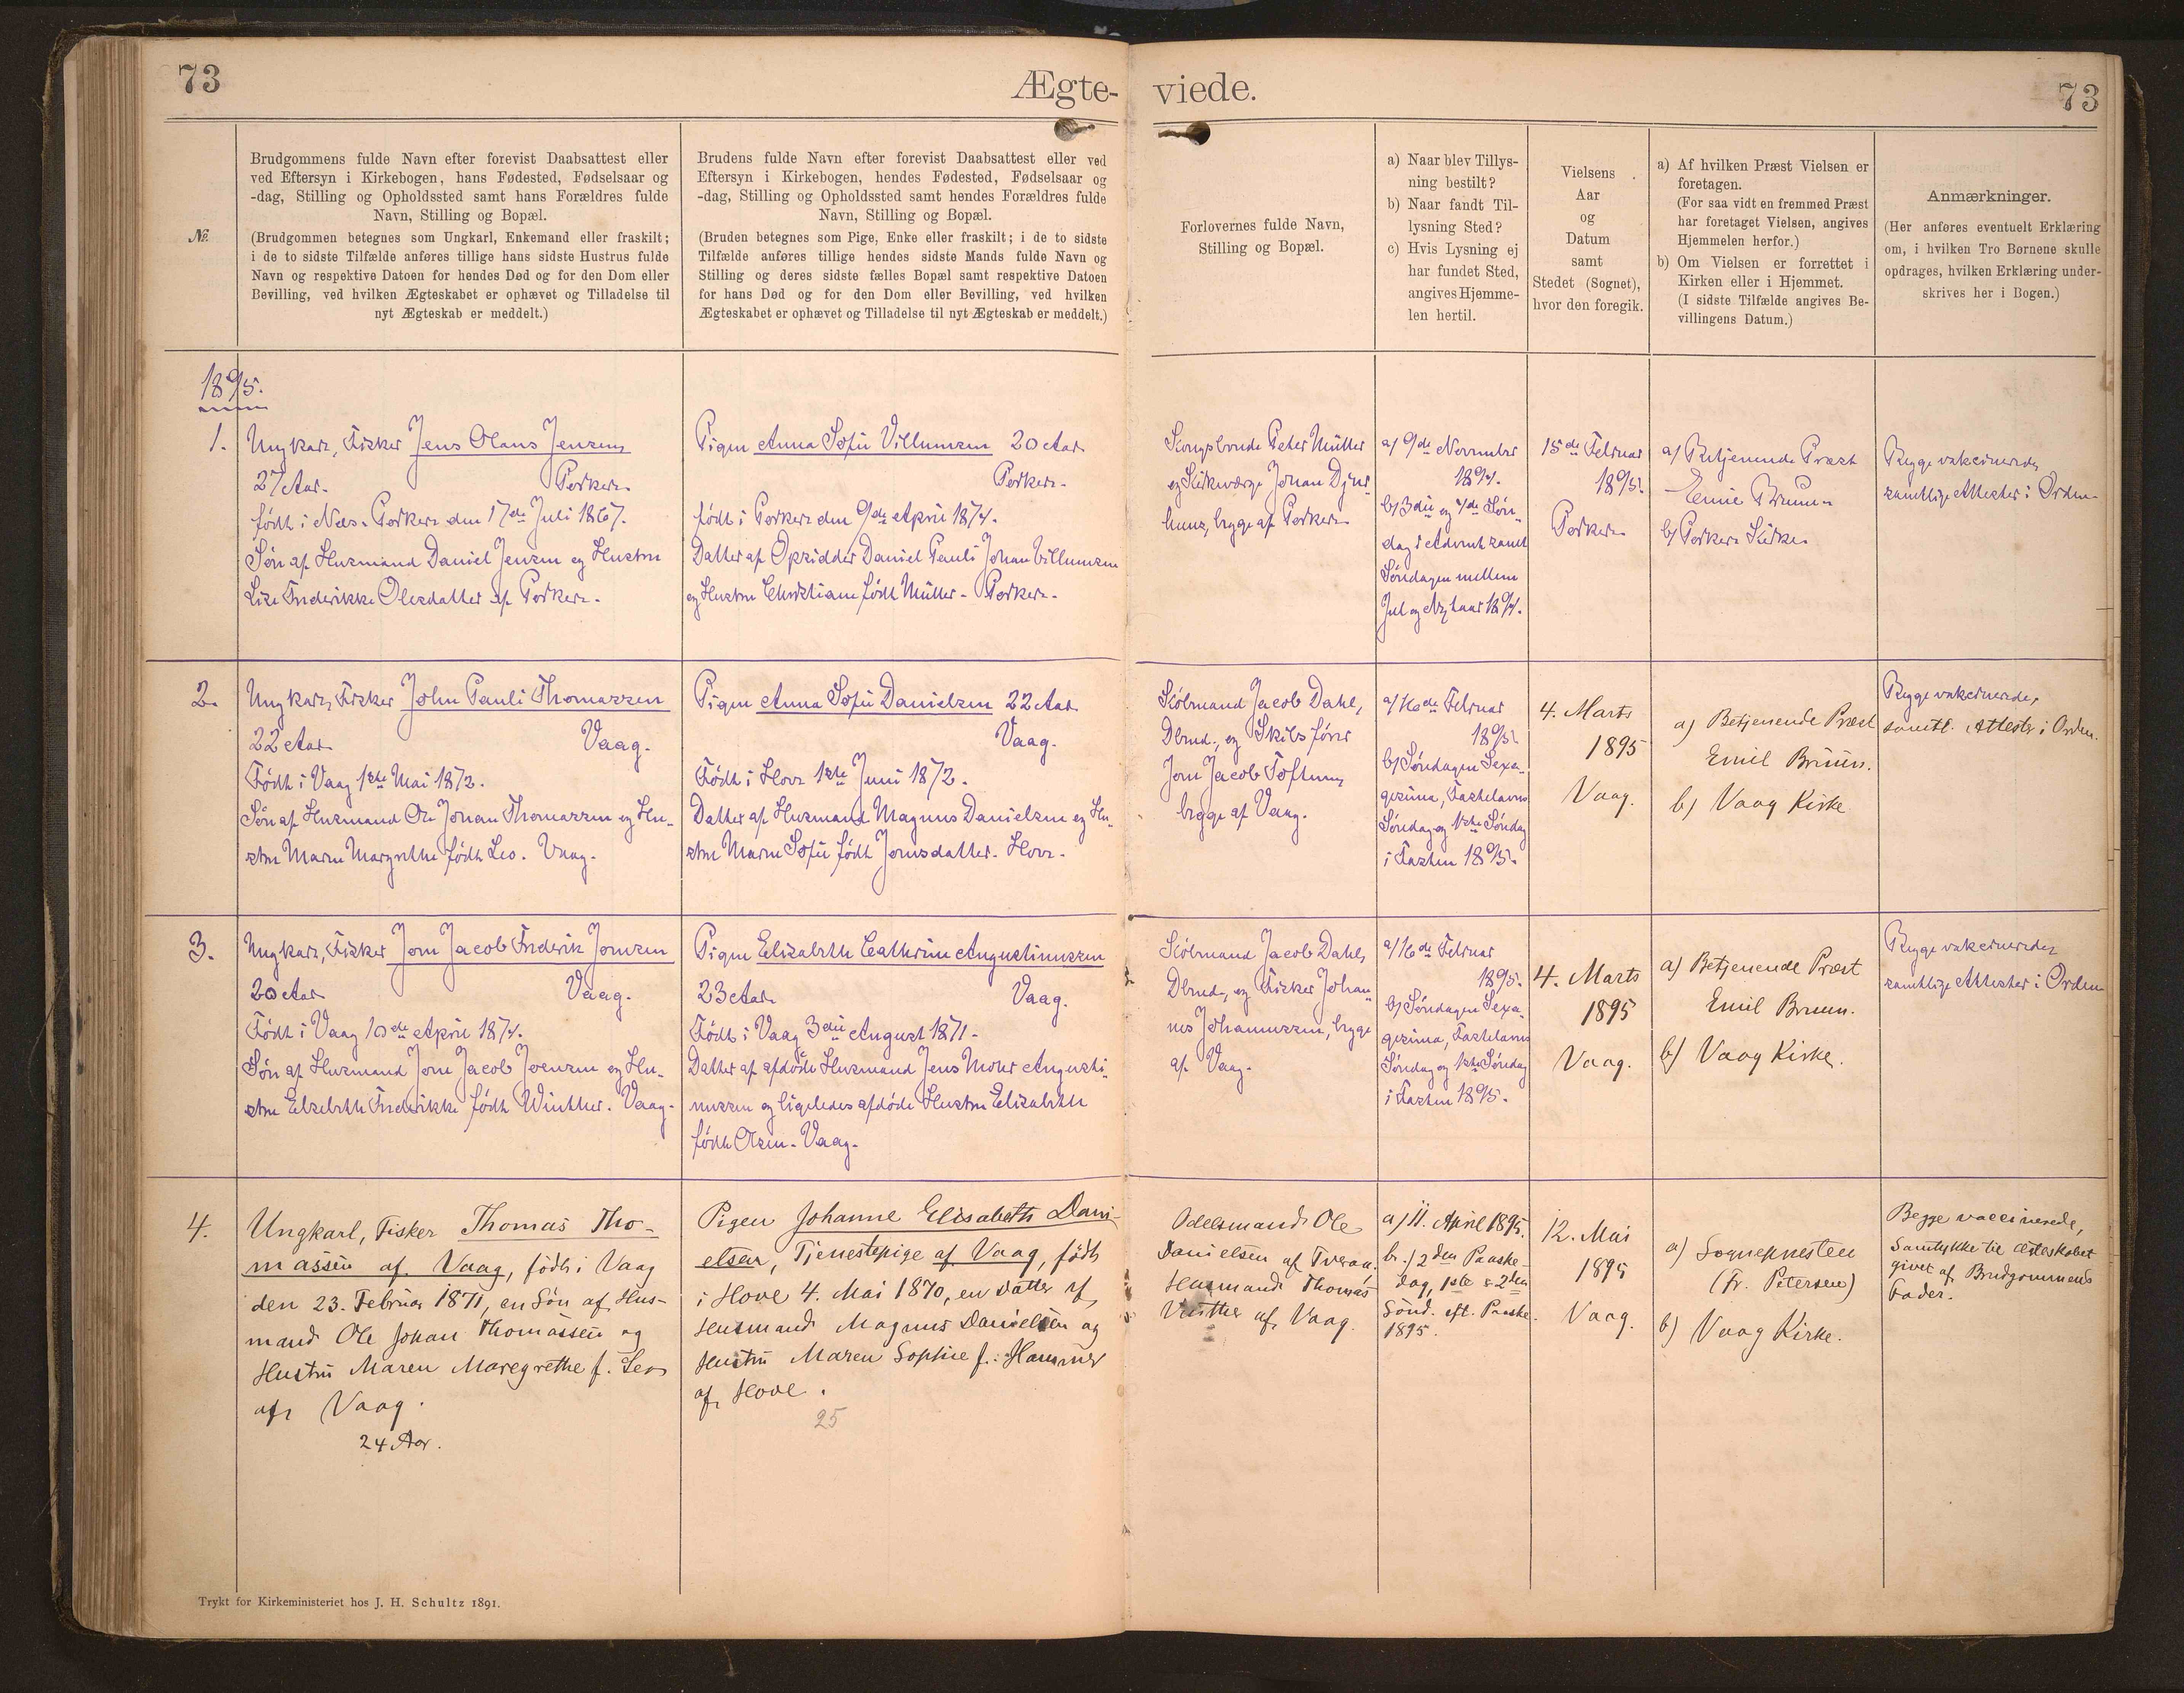 73
Ægte-
viede.
73
№
Brudgommens fulde Navn efter forevist Daabsattest eller
ved Eftersyn i Kirkebogen, hans Fødested, Fødselsaar og
-dag, Stilling og Opholdssted samt hans Forældres fulde
Navn, Stilling og Bopæl.
(Brudgommen betegnes som Ungkarl, Enkemand eller fraskilt;
i de to sidste Tilfælde anføres tillige hans sidste Hustrus fulde
Navn og respektive Datoen for hendes Død og for den Dom eller
Bevilling, ved hvilken Ægteskabet er ophævet og Tilladelse til
nyt Ægteskab er meddelt.)
Brudens fulde Navn efter forevist Daabsattest eller ved
Eftersyn i Kirkebogen, hendes Fødested, Fødselsaar og
-dag, Stilling og Opholdssted samt hendes Forældres fulde
Navn, Stilling og Bopæl.
(Bruden betegnes som Pige, Enke eller fraskilt; i de to sidste
Tilfælde anføres tillige hendes sidste Mands fulde Navn og
Stilling og deres sidste fælles Bopæl samt respektive Datoen
for hans Død og for den Dom eller Bevilling, ved hvilken
Ægteskabet er ophævet og Tilladelse til nyt Ægteskab er meddelt.)
Forlovernes fulde Navn,
Stilling og Bopæl.
a) Naar blev Tillys-
ning bestilt?
b) Naar fandt Til-
lysning Sted?
c) Hvis Lysning ej
har fundet Sted,
angives Hjemme-
len hertil.
Vielsens
Aar
og
Datum
samt
Stedet (Sognet),
hvor den foregik.
a) Af hvilken Præst Vielsen er
foretagen.
(For saa vidt en fremmed Præst
har foretaget Vielsen, angives
Hjemmelen herfor.)
b) Om Vielsen er forrettet i
Kirken eller i Hjemmet.
(I sidste Tilfælde angives Be-
villingens Datum.)
Anmærkninger.
(Her anføres eventuelt Erklæring
om, i hvilken Tro Børnene skulle
opdrages, hvilken Erklæring under-
skrives her i Bogen.)
1895.
1.
Ungkarl, Fisker Jens Olaus Jensen,
27 Aar. Porkere.
født i Næs. Porkere den 17de Juli 1867.
Søn af Husmand Daniel Jensen og Hustru
Lise Frederikke Olesdatter af Porkere.
Pigen Anna Sofie Villumsen 20 Aar.
Porkere.
født i Porkere den 9de April 1874.
Datter af Opsidder Daniel Pauli Johan Villumsen
og Hustru Christiane født Müller. Porkere.
Kongsbonde Peter Müller
og Kirkeværge Johan Djur-
huus, begge af Porkere.
a) 9de November
1894.
b) 3die og 4de Søn-
dag i Advent samt
Søndagen mellem
Jul og Nytaar 1894.
15de Februar
1895.
Porkere
a) Betjenende Præst
Emil Bruun
b) Porkere Kirke.
Begge vakcinerede,
samtlige Attester i Orden.
2.
Ungkarl, Fisker John Pauli Thomassen
22 Aar. Vaag.
Født i Vaag 1ste Mai 1872.
Søn af Husmand Ole Johan Thomassen og Hu-
stru Maren Margrethe født Leo. Vaag.
Pigen Anna Sofie Danielsen 22 Aar.
Vaag.
Født i Hove 1ste Juni 1872.
Datter af Husmand Magnus Danielsen og Hu-
stru Maren Sofie født Joensdatter. Hove.
Købmand Jacob Dahl,
Dbmd., og Skibsfører
Jom Jacob Toftum,
begge af Vaag.
a) 16de Februar
1895.
b) Søndagen Sexa-
gesima, Fastelavns
Søndag og 1ste Søndag
i Fasten 1895.
4. Marts
1895
Vaag.
a) Betjenende Præst
Emil Bruun.
b) Vaag Kirke
Begge vakcinerede,
samtl. Attester i Orden.
3.
Ungkarl, Fisker Jom Jacob Frederik Jomsen
20 Aar. Vaag.
Født i Vaag 10de April 1874.
Søn af Husmand Jom Jacob Joensen og Hu-
stru Elsebeth Frederikke født Winther. Vaag.
Pigen Elisabeth Cathrine Augustinussen
23 Aar. Vaag.
Født i Vaag 3die August 1871.
Datter af afdøde Husmand Jens Mohr Augusti-
nussen og ligeledes afdøde Hustru Elisabeth
født Olsen. Vaag.
Købmand Jacob Dahl,
Dbmd., og Fisker Johan-
nes Johannessen, begge
af Vaag.
a) 16de Februar
1895.
b) Søndagen Sexa-
gesima, Fastelavns
Søndag og 1ste Søndag
i Fasten 1895.
4. Marts
1895
Vaag.
a) Betjenende Præst
Emil Bruun.
b) Vaag Kirke.
Begge vakcinerede,
samtlige Attester i Orden
4.
Ungkarl, Fisker Thomas Tho-
massen af Vaag, født i Vaag
den 23. Februar 1871, en Søn af Hus-
mand Ole Johan Thomassen og
Hustru Maren Maregrethe f. Leo
af Vaag.
24 Aar.
Pigen Johanne Elisabeth Dani-
elsen, Tjenestepige af Vaag, født
i Hove 4. Mai 1870, en Datter af
Husmand Magnus Danielsen og
Hustru Maren Sophie f. Hammer
af Hove.
25
Odelsmand Ole
Danielsen af Tveraa.
Husmand Thomas
Vinther af Vaag.
a) 11. April 1895.
b.) 2den Paaske-
dag, 1ste & 2den
Sønd. eft. Paaske.
1895.
12. Mai
1895
Vaag.
a) Sognepræsten
(Fr. Petersen)
b) Vaag Kirke.
Begge vaccinerede,
Samtykke til Ægteskabet
givet af Brudgommens
Fader.
Trykt for Kirkeministeriet hos J. H. Schultz 1891.